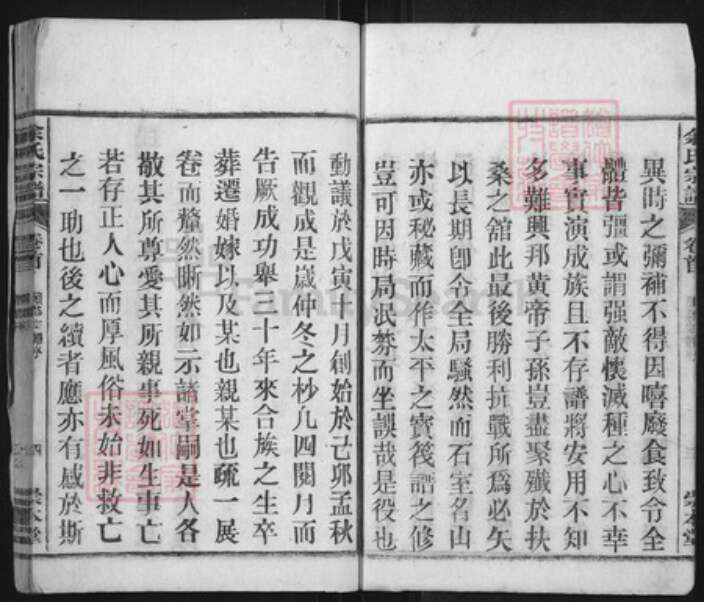 異時之彌補不得因噎廢食致令全
體皆彊或謂强敵懷滅種之心不幸
事實演成族且不存譜將安用不知
多難興邦黃帝子孫豈盡聚殲於扶
桑之舘此最後勝利抗戰所爲必矢
以長期卽令全局騷然而石室名山
亦或秘藏而作太平之寳筏譜之修
豈可因時局泯棼而坐誤哉是役也
動議於戊寅十月創始於己卯孟秋
而觀成是歲仲冬之杪凡四閱月而
告厥成功舉八十年來合族之生卒
葬遷婚嫁以及某也親某也疏一展
卷而釐然晰然如示諸掌嗣是人各
敬其所尊愛其所親事死如生事亡
若存正人心而厚風俗未始非救亡
之一助也後之續者應亦有感於斯
余氏宗譜
卷首
四
余氏宗譜
卷首
三
FamilySearch